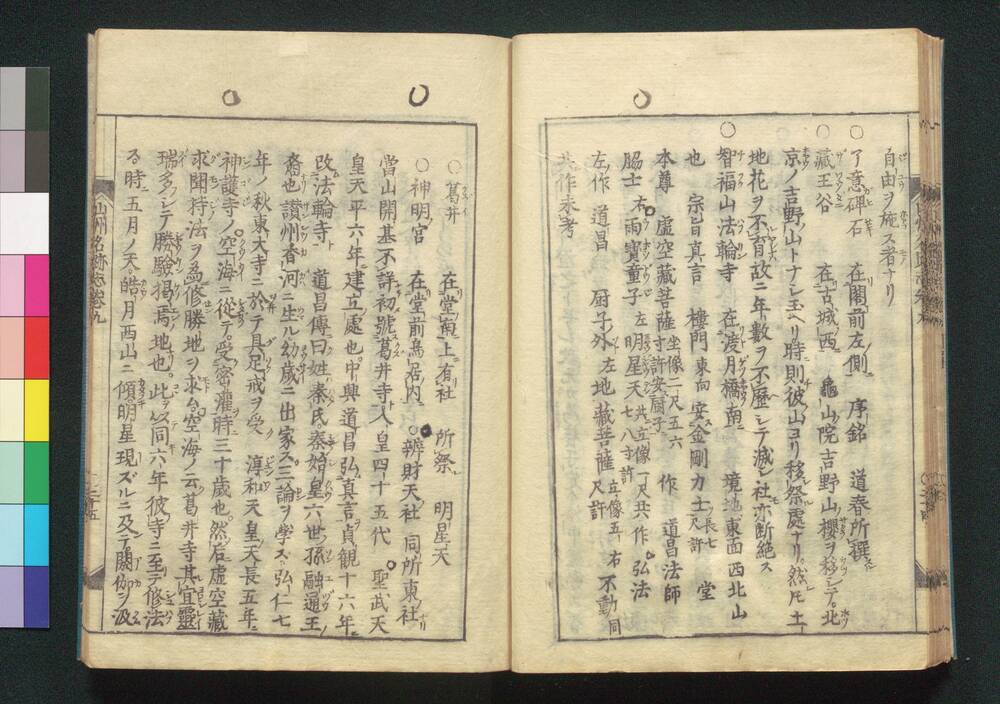 自由ヲ施ス者ナリ
○了意碑石 在閣前左側 序銘 道春所撰
○藏王谷 在古城西 龜山院吉野山櫻ヲ移シテ北
京ノ吉野山トナシ玉ヘリ時則彼山ヨリ移祭處ナリ然圧土
地花ヲ不育故ニ年數ヲ不歴シテ滅シ社亦断絶ス
○智福山法輪寺 在渡月橋南 境地東面西北山
也 宗旨真言 樓門東向 安金剛力士 長七尺許 堂
本尊 虚空藏菩薩 坐像二尺五六寸許安厨子 作 道昌法師
脇士 右雨寶童子 左明星天 共立像一尺七八寸許 共作 弘法
左作 道昌 厨子外左地藏菩薩 立像五尺許 右不動同
共作未考
○葛井 在堂南上有社 所祭 明星天
○神明宮 在堂前鳥居内 ○辨財天社 同所東社
當山開基不許初號葛井寺人皇四十五代 聖武天
皇天平六年建立處也中興道昌弘真言貞觀十六年
改法輪寺 道昌傳曰姓秦氏秦始皇六世孫融通王
裔也讃州香河ニ生ル幼歳ニ出家ス三論ヲ學ス弘仁七
年ノ秋東大寺ニ於テ具足戒ヲ受 淳和天皇天長五年
神護寺ノ空海ニ從テ受密灌時三十歳也然后虚空藏
求聞持法ヲ為修勝地ヲ求ム空海ノ云葛井寺其宜靈
瑞多シテ勝驗掲焉ノ地也此ヒ同六年彼寺ニ至テ修法
ル時五月ノ天皓月西山ニ傾明星現ズルニ及テ閼伽ヲ汲
山州名跡志巻九